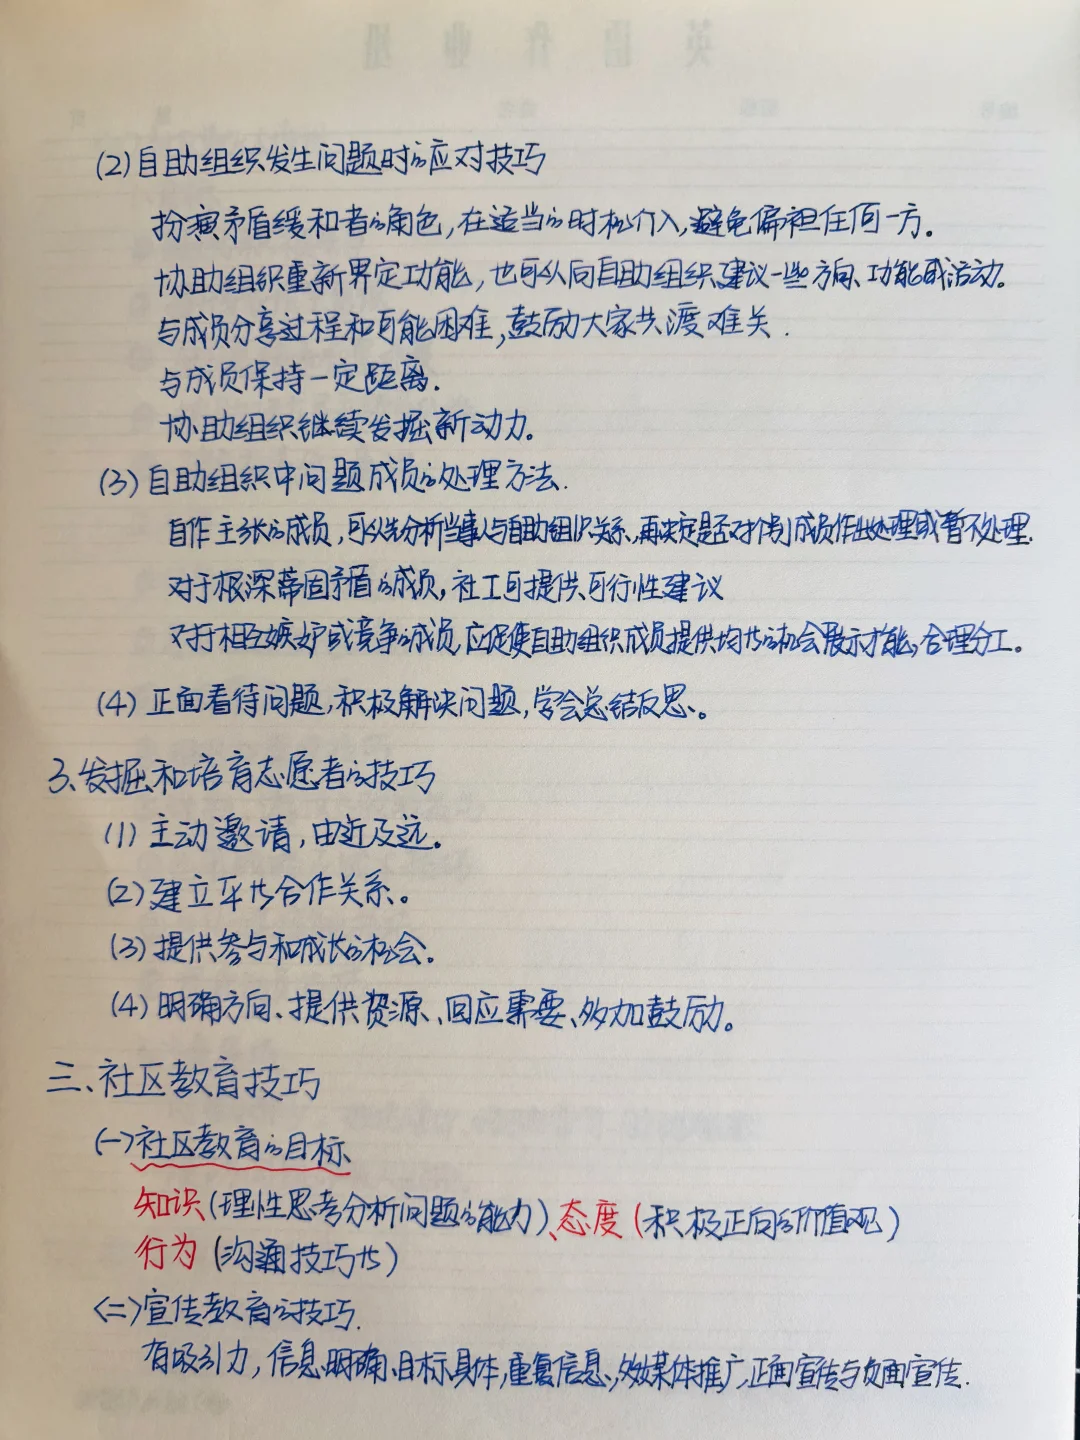 (2)自助组织发生问题时的应对技巧
扮演矛盾缓和者的角色,在适当的时机介入,避免偏袒任何一方。
协助组织重新界定功能,也可以向自助组织建议一些方向、功能或活动。
与成员分享过程和可能困难,鼓励大家共渡难关.
与成员保持一定距离.
协助组织继续发掘新动力。
(3)自助组织中问题成员的处理方法.
自作主张的成员,可以先分析当事人与自助组织关系,再决定是否对个别成员作出处理或暂不处理.
对于根深蒂固矛盾的成员,社工可提供可行性建议
对于相互嫉妒或竞争的成员,应促使自助组织成员提供均等的机会展示才能,合理分工。
(4)正面看待问题,积极解决问题,学会总结反思、。
3、发掘和培育志愿者的技巧
(1)主动邀请,由近及远。
(2)建立平等合作关系。
(3)提供参与和成长的机会。
(4)明确方向、提供资源、回应需要、多加鼓励。
三、社区教育技巧
(一)社区教育的目标
知识(理性思考分析问题的能力)、态度(积极正向的价值观)
行为(沟通技巧等)
<二>宣传教育的技巧.
有吸引力,信息明确、目标具体,重复信息,多媒体推广,正面宣传与负面宣传.
英语作业纸